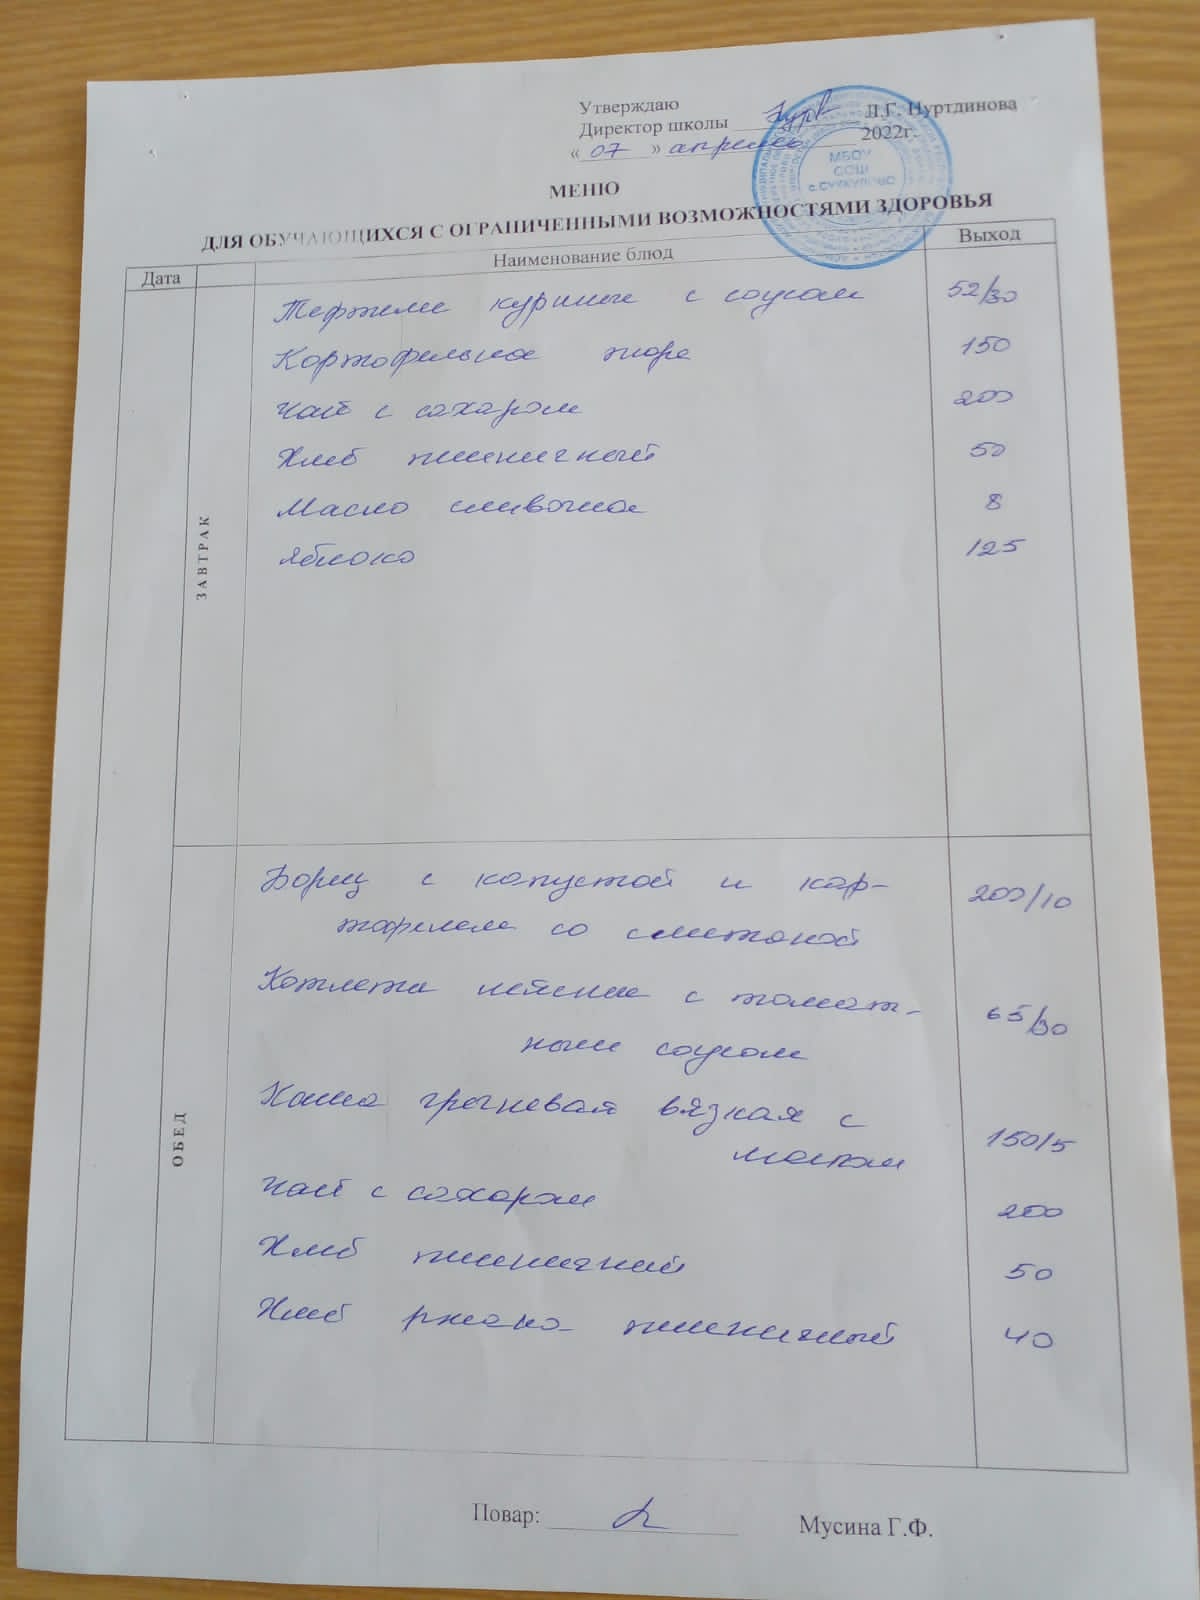 Утверждаю
Директор школы Л.Г. Нуртдинова
« 07 » апрель 2022г.
МБОУ
СОШ
с.СУККУЛОВО
МЕНЮ
ДЛЯ ОБУЧАЮЩИХСЯ С ОГРАНИЧЕННЫМИ ВОЗМОЖНОСТЯМИ ЗДОРОВЬЯ
Дата Наименование блюд Выход
ЗАВТРАК
Тефтели куриные с соусом 52/30
Картофельное пюре 150
Чай с сахаром 200
Хлеб пшеничный 50
Масло сливочное 8
Яблоко 125
ОБЕД
Борщ с капустой и кар-
тофелем со сметаной 200/10
Котлета мясная с томат-
ным соусом 65/30
Каша гречневая вязкая с
маслом 150/5
Чай с сахаром 200
Хлеб пшеничный 50
Хлеб ржано пшеничный 40
Повар: Мусина Г.Ф.